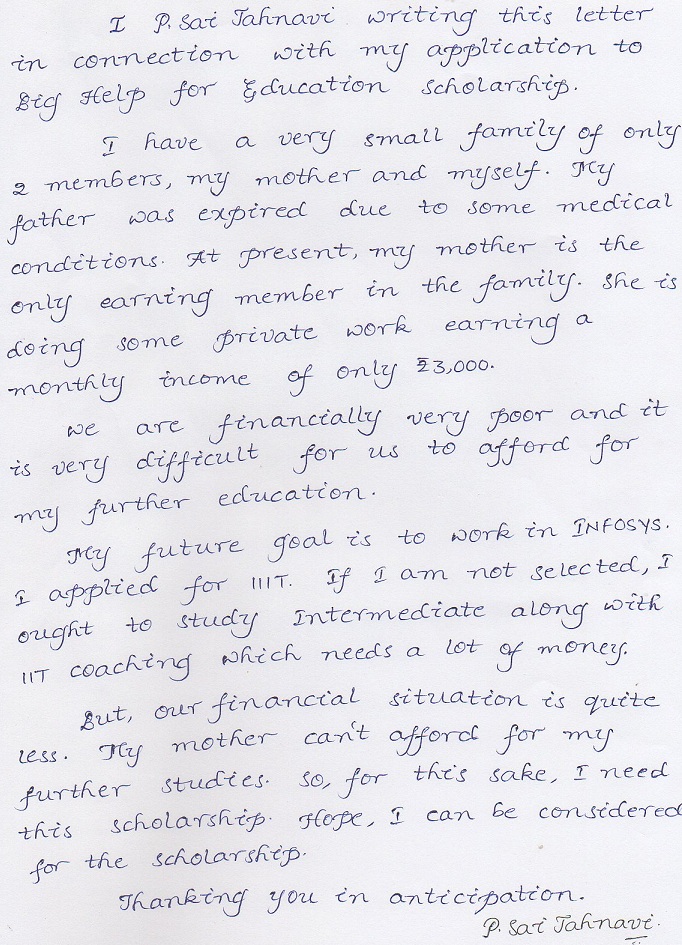 I P. Sai Jahnavi writing this letter
in connection with my application to
Big Help for Education scholarship.
I have a very small family of only
2 members, my mother and myself. My
father was expired due to some medical
conditions. At present, my mother is the
only earning member in the family. She is
doing some private work earning a
monthly income of only ₹3,000.
We are financially very poor and it
is very difficult for us to afford for
my further education.
My future goal is to work in INFOSYS.
I applied for IIIT. If I am not selected, I
ought to study Intermediate along with
IIT coaching which needs a lot of money.
But, our financial situation is quite
less. My mother can't afford for my
further studies. So, for this sake, I need
this scholarship. Hope, I can be considered
for the scholarship.
Thanking you in anticipation.
P. Sai Jahnavi.